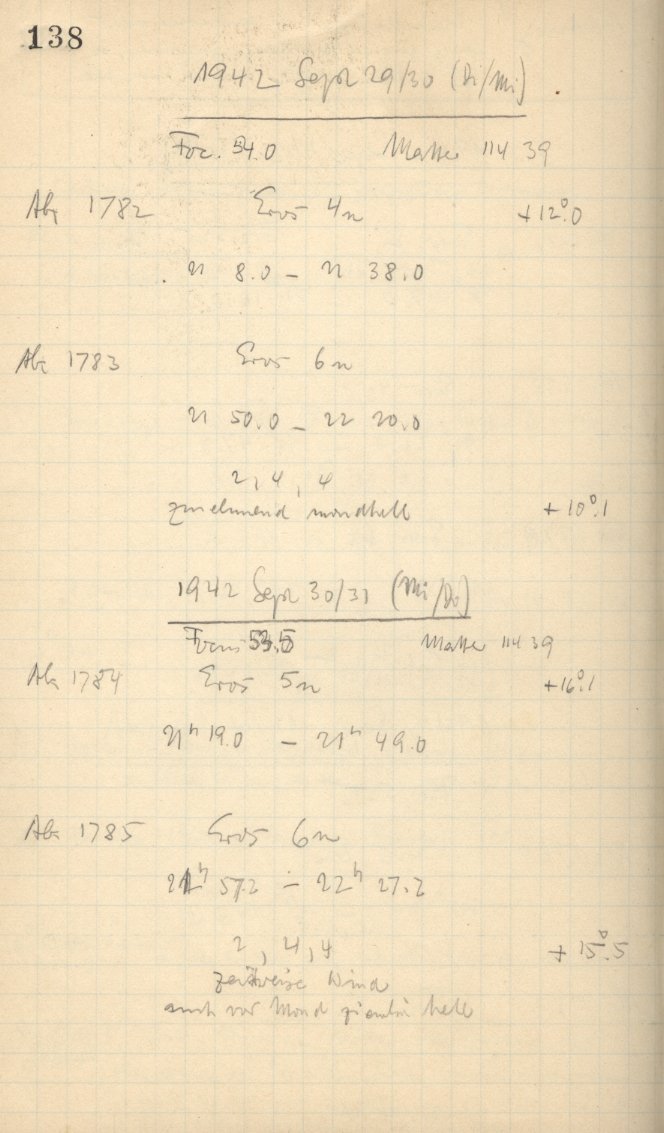 138
1942 Sept 29/30 (Di/Mi)
Foc. 54.0 Matter 114 39
1782 Eros 4n +12°.0
21 8.0 – 21 38.0
1783 Eros 6n
21 50.0 – 22 20.0
2, 4, 4
zunehmend mondhell +10°.1
1942 Sept 30/31 (Mi/Do)
Focus 53.5 Matter 114 39
1784 Eros 5n +16°.1
21h 19.0 – 21h 49.0
1785 Eros 6n
21h 57.2 – 22h 27.2
2, 4, 4 +15°.5
zeitweise Wind
auch vor Mond ziemlich hell